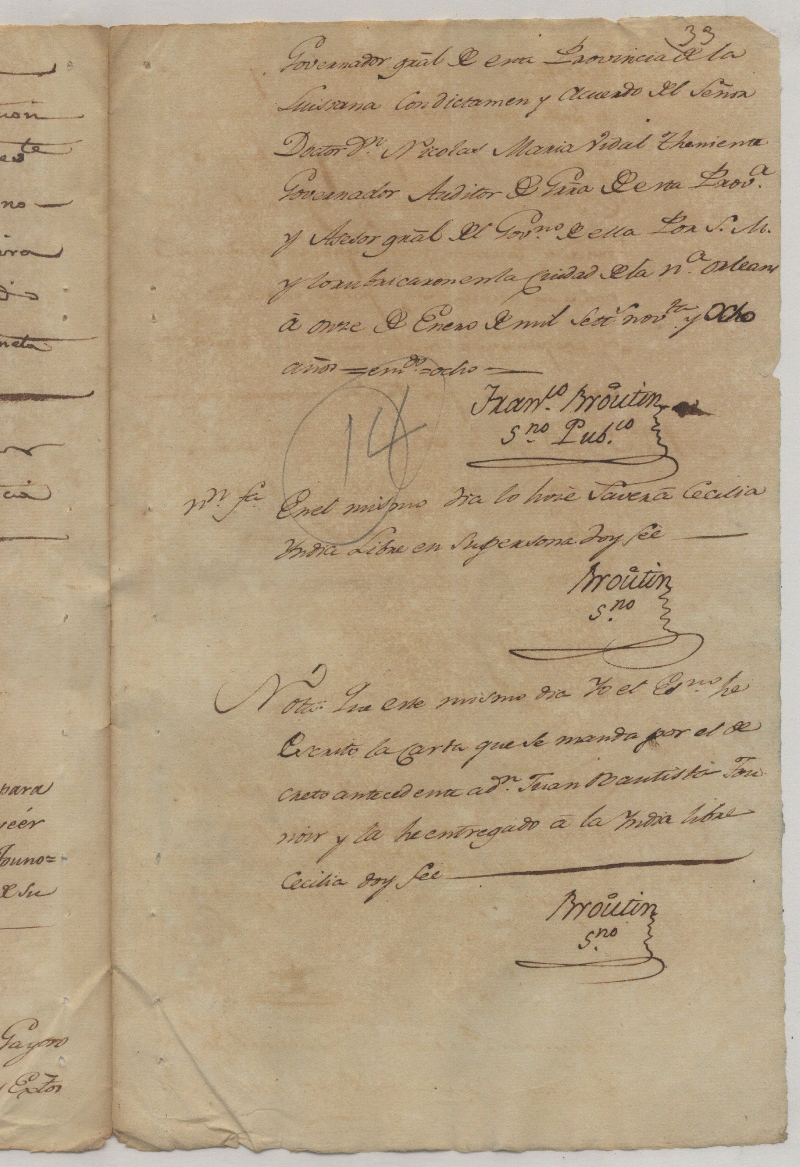 ion
es te
no —
ira
dio
neta
cia
para
veér
Touno=
de su
Gayoso
y Extor
33
Governador gral de esta Provincia de la
Luisiana Con dictamen y acuerdo del Señor
Doctor Dn. Nicolas Maria Vidal Theniente
Governador Auditor de Grra de esta Prova.
y Asesor gral del Govno. de ella Por S. M.
y lo rubricaron en la Ciudad de la na. orleans
à onze de Enero de mil Setz. novta y Ocho
años = emdo = ocho —
Franco. Broutin
Sno. Pubco.
14
nn. fa. En el mismo dia lo hize Saver à Cecilia
India Libre en su persona doy feé —
Broutin
Sno.
Nota: Que este mismo dia Yo el Esno he
Escrito la Carta que se manda por el de
creto antecedente a dn. Juan Bautista Tou
noir y la he entregado à la India libre
Cecilia doy feé
Broutin
Sno.